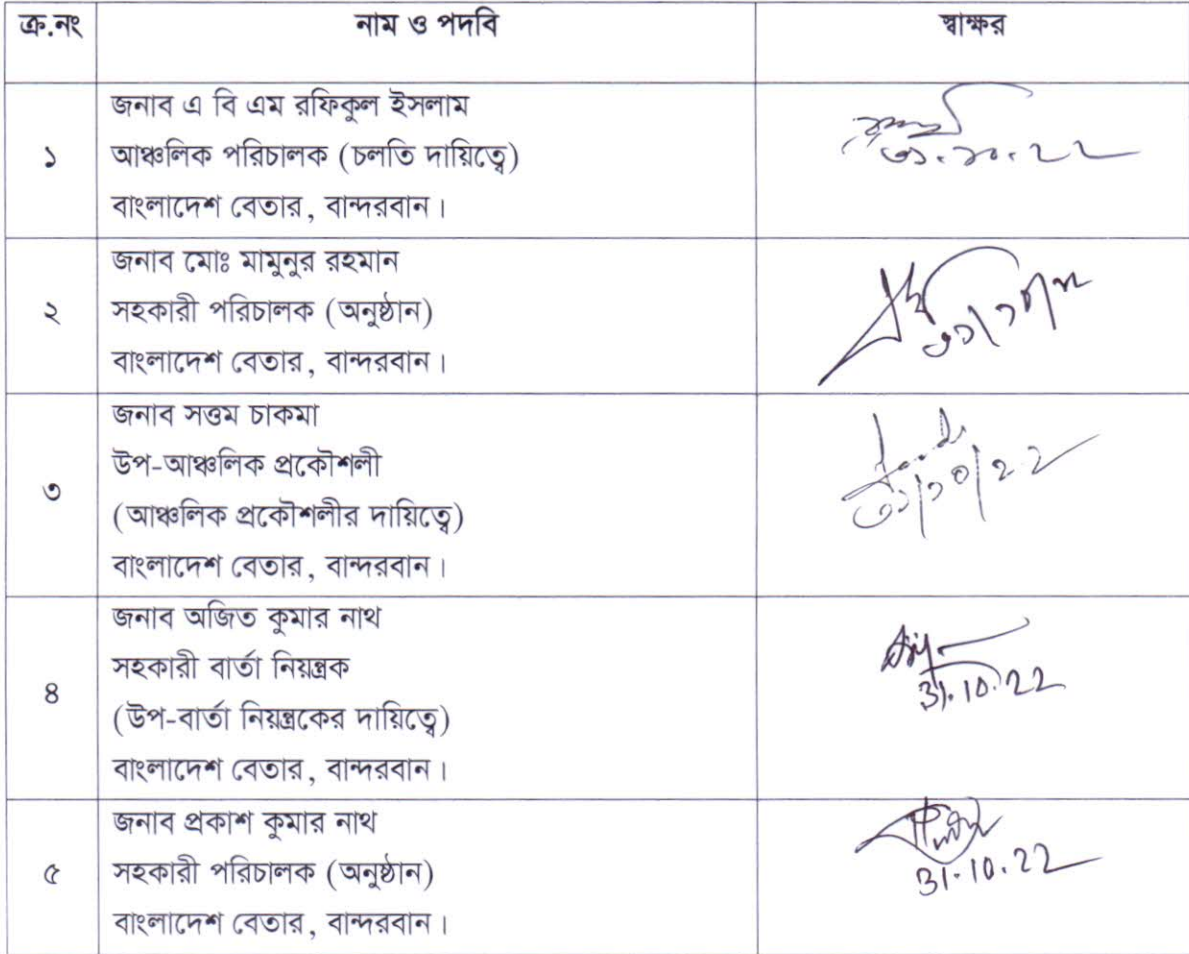 ক্র.নং নাম ও পদবি স্বাক্ষর
জনাব এ বি এম রফিকুল ইসলাম
১ আঞ্চলিক পরিচালক (চলতি দায়িত্বে)
বাংলাদেশ বেতার, বান্দরবান।
৩১.১০.২২
জনাব মোঃ মামুনুর রহমান
২ সহকারী পরিচালক (অনুষ্ঠান)
বাংলাদেশ বেতার, বান্দরবান।
৩১/১০/২২
জনাব সত্তম চাকমা
উপ-আঞ্চলিক প্রকৌশলী
৩ (আঞ্চলিক প্রকৌশলীর দায়িত্বে)
বাংলাদেশ বেতার, বান্দরবান।
৩১/১০/২২
জনাব অজিত কুমার নাথ
সহকারী বার্তা নিয়ন্ত্রক
৪ (উপ-বার্তা নিয়ন্ত্রকের দায়িত্বে)
বাংলাদেশ বেতার, বান্দরবান।
31.10.22
জনাব প্রকাশ কুমার নাথ
৫ সহকারী পরিচালক (অনুষ্ঠান)
বাংলাদেশ বেতার, বান্দরবান।
31.10.22